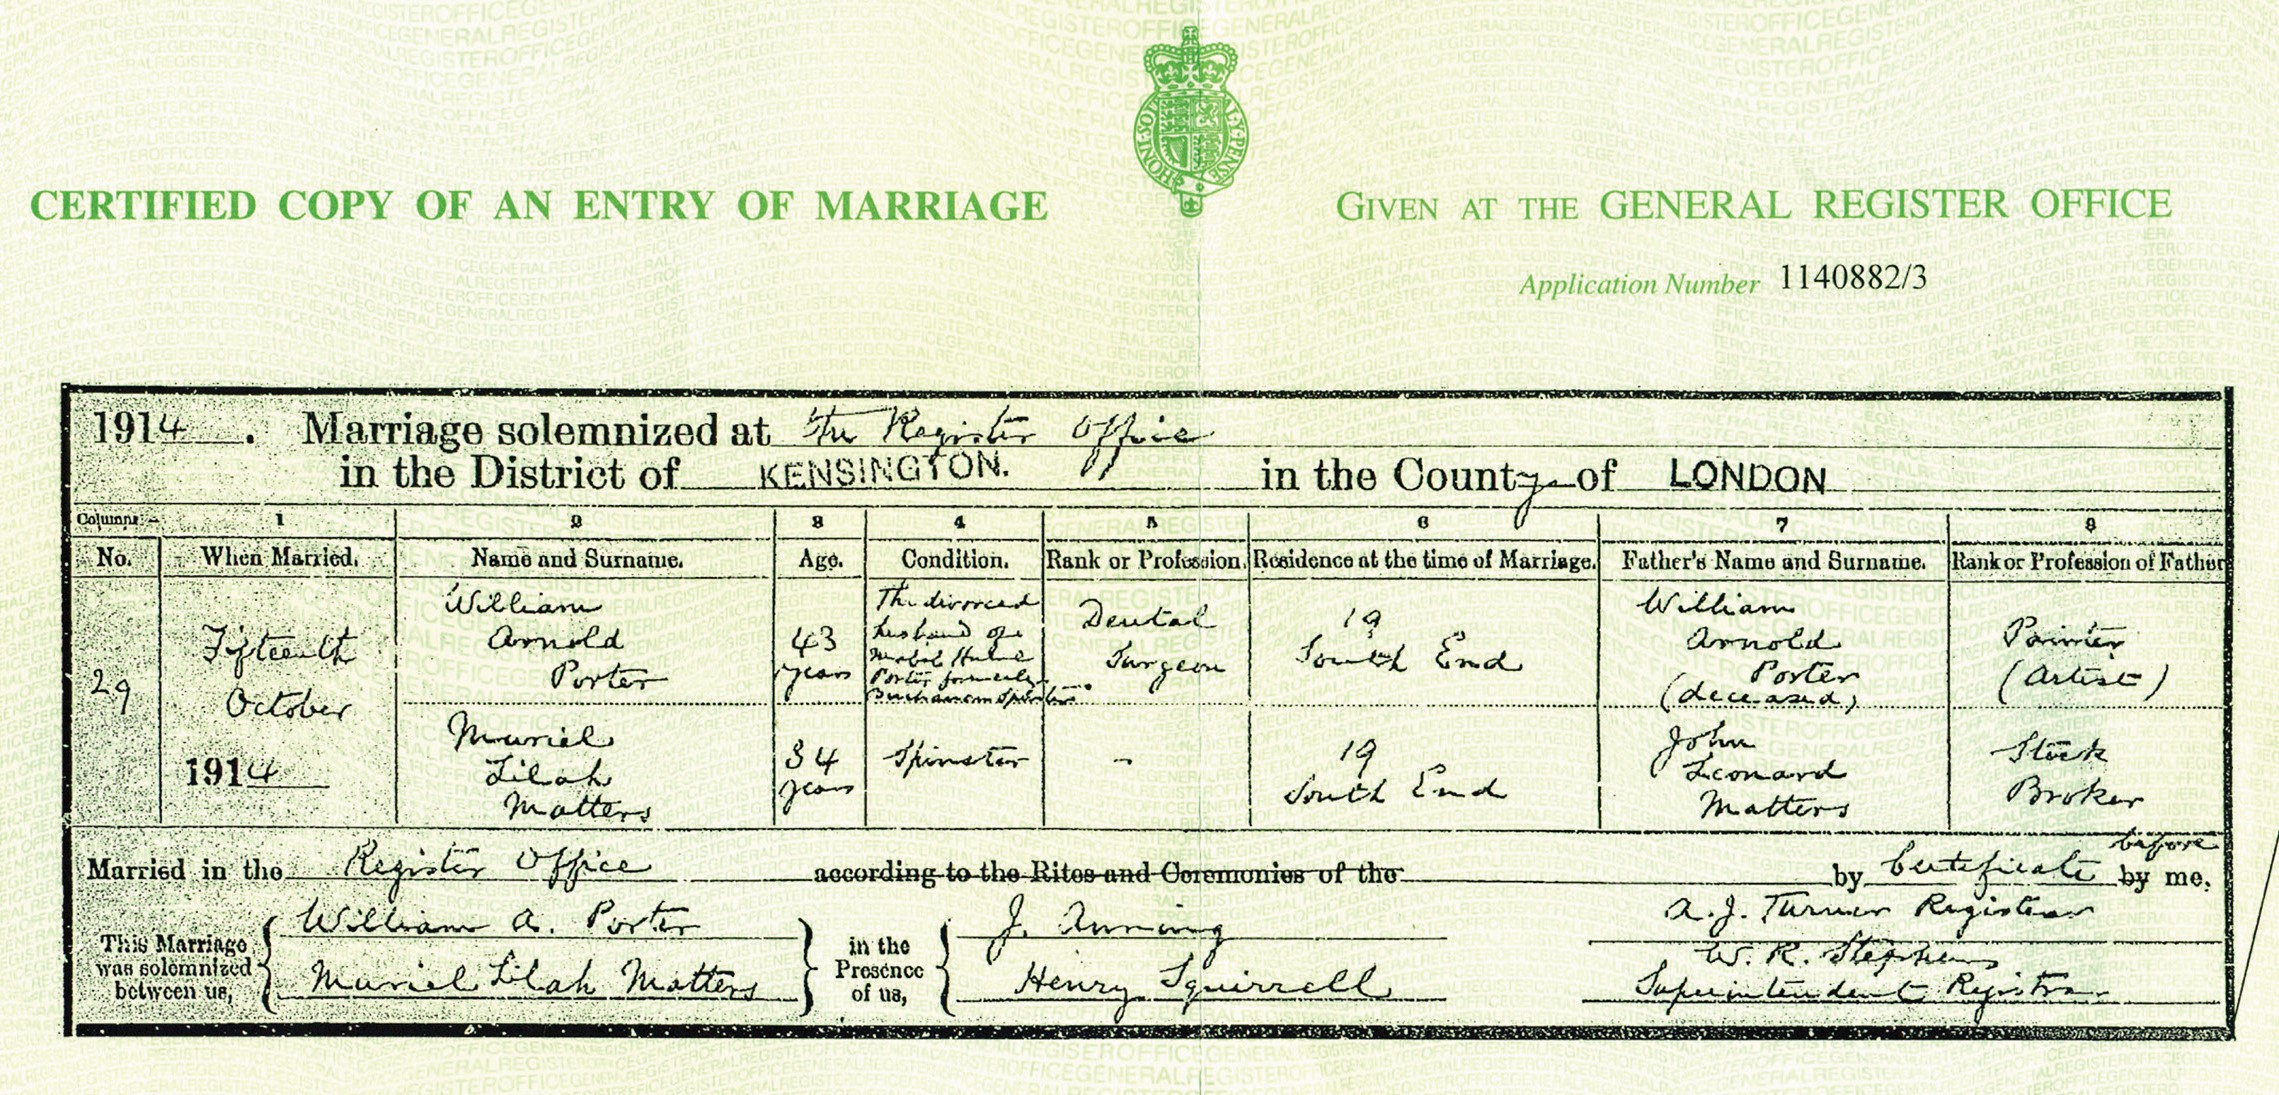 HONI·SOI
Y·PENSE
CERTIFIED COPY OF AN ENTRY OF MARRIAGE
GIVEN AT THE GENERAL REGISTER OFFICE
Application Number 1140882/3
1914. Marriage solemnized at The Register Office
in the District of KENSINGTON. in the County of LONDON
Columns:- 1 2 3 4 5 6 7 8
No. When Married. Name and Surname. Age. Condition. Rank or Profession. Residence at the time of Marriage. Father's Name and Surname. Rank or Profession of Father
29
Fifteenth
October
1914
William
Arnold
Porter
43
years
The divorced
husband of
Mabel
Porter formerly
Buchanan Spinster.
Dental
Surgeon
19
South End
William
Arnold
Porter
(deceased)
Painter
(Artist)
Muriel
Lilah
Matters
34
years
Spinster
-
19
South End
John
Leonard
Matters
Stock
Broker
Married in the Register Office according to the Rites and Ceremonies of the by Certificate before by me,
This Marriage
was solemnized
between us,
William A. Porter
Muriel Lilah Matters
in the
Presence
of us,
J. Anning
Henry Squirrell
A. J. Turner Registrar
W. R. Stephens
Superintendent Registrar